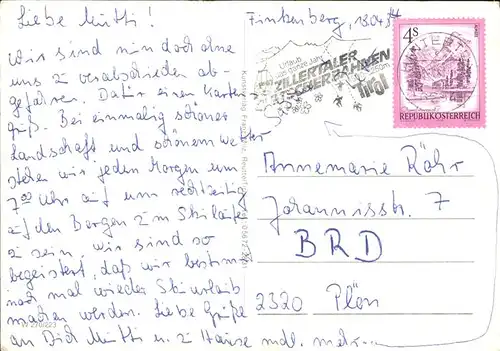 Liebe Mutti!
Wir sind nun doch ohne
uns zu verabschieden ab-
gefahren. Dafür einen Karten-
gruß. Bei einmalig schöner
Landschaft und schönem Wetter
stehen wir jeden Morgen um
7⁰⁰ Uhr auf um rechtzeitig
auf den Bergen zum Skilaufen
zu sein. Wir sind so
begeistert, daß wir bestimmt
noch mal wieder Skiurlaub
machen werden. Liebe Grüße
an Dich Mutti u. zu Hause mdl. mehr...
Finkenberg, 18.04.84
Urlaub
ZILLERTALER
GLETSCHERBAHNEN
Tirol
4S
REPUBLIK ÖSTERREICH
Annemarie Röhr
Johannisstr. 7
BRD
2320 Plön